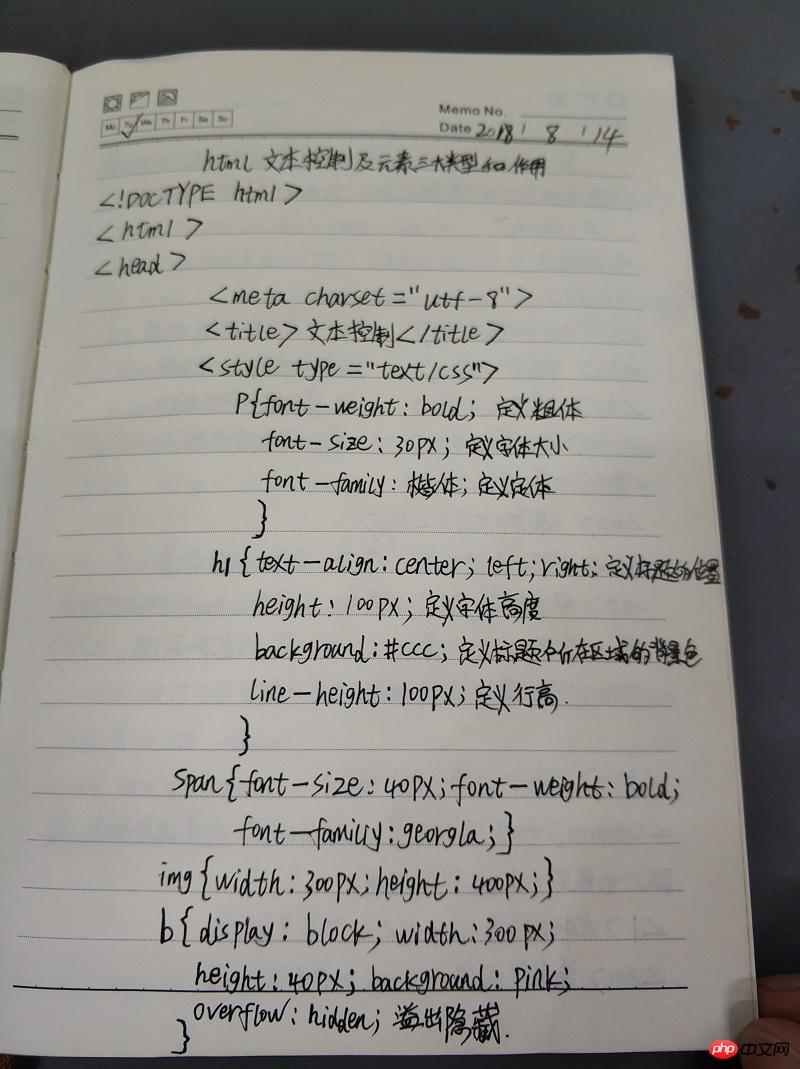 Mo Tu We Th Fr Sa Su
Memo No.
Date 2018 / 8 / 14
html 文本控制及元素三大类型和作用
<!DOCTYPE html>
<html>
<head>
<meta charset="utf-8">
<title>文本控制</title>
<style type="text/css">
P{font-weight: bold; 定义粗体
font-size: 30px; 定义字体大小
font-family: 楷体; 定义字体
}
h1{text-align: center; left; right; 定义标题的位置
height: 100px; 定义字体高度
background: #ccc; 定义标题所在区域的背景色
line-height: 100px; 定义行高.
}
span{font-size: 40px; font-weight: bold;
font-family: georgla;}
img{width: 300px; height: 400px;}
b{display: block; width: 300px;
height: 40px; background: pink;
overflow: hidden; 溢出隐藏.
}
php中文网